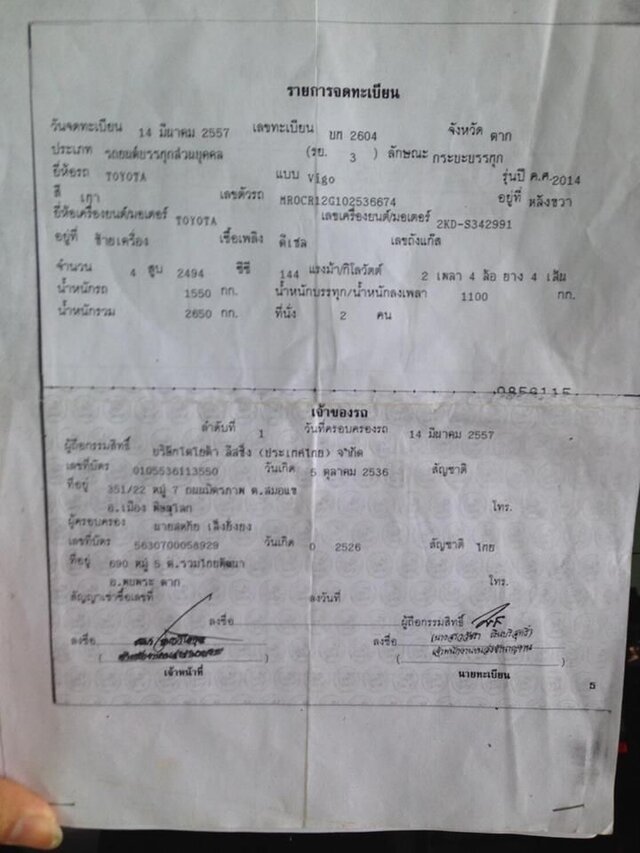 รายการจดทะเบียน
วันจดทะเบียน 14 มีนาคม 2557 เลขทะเบียน บท 2604 จังหวัด ตาก
ประเภท รถยนต์บรรทุกส่วนบุคคล (รย. 3 ) ลักษณะ กระบะบรรทุก
ยี่ห้อรถ TOYOTA แบบ Vigo รุ่นปี ค.ศ. 2014
สี เทา เลขตัวรถ MROCR12G102536674 อยู่ที่ หลังขวา
ยี่ห้อเครื่องยนต์/มอเตอร์ TOYOTA เลขเครื่องยนต์/มอเตอร์ 2KD-S342991
อยู่ที่ ซ้ายเครื่อง เชื้อเพลิง ดีเซล เลขถังแก๊ส
จำนวน 4 สูบ 2494 ซีซี 144 แรงม้า/กิโลวัตต์ 2 เพลา 4 ล้อ ยาง 4 เส้น
น้ำหนักรถ 1550 กก. น้ำหนักบรรทุก/น้ำหนักลงเพลา 1100 กก.
น้ำหนักรวม 2650 กก. ที่นั่ง 2 คน
เจ้าของรถ
ลำดับที่ 1 วันที่ครอบครองรถ 14 มีนาคม 2557
ผู้ถือกรรมสิทธิ์ บริษัทโตโยต้า ลีสซิ่ง (ประเทศไทย) จำกัด
เลขที่บัตร 0105536113550 วันเกิด 5 ตุลาคม 2536 สัญชาติ
ที่อยู่ 351/22 หมู่ 7 ถนนมิตรภาพ ต.สมอแข
อ.เมือง พิษณุโลก โทร.
ผู้ครอบครอง
เลขที่บัตร 5630700058929 วันเกิด 0 2526 สัญชาติ ไทย
ที่อยู่ 690 หมู่ 5 ต.รวมไทยพัฒนา
อ.พบพระ ตาก โทร.
สัญญาเช่าซื้อเลขที่ ลงวันที่
ลงชื่อ ผู้ถือกรรมสิทธิ์
ลงชื่อ ลงชื่อ
เจ้าหน้าที่ นายทะเบียน
5